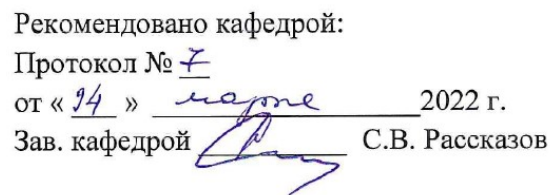 Рекомендовано кафедрой:
Протокол № 7
от « 24 » марта 2022 г.
Зав. кафедрой С.В. Рассказов